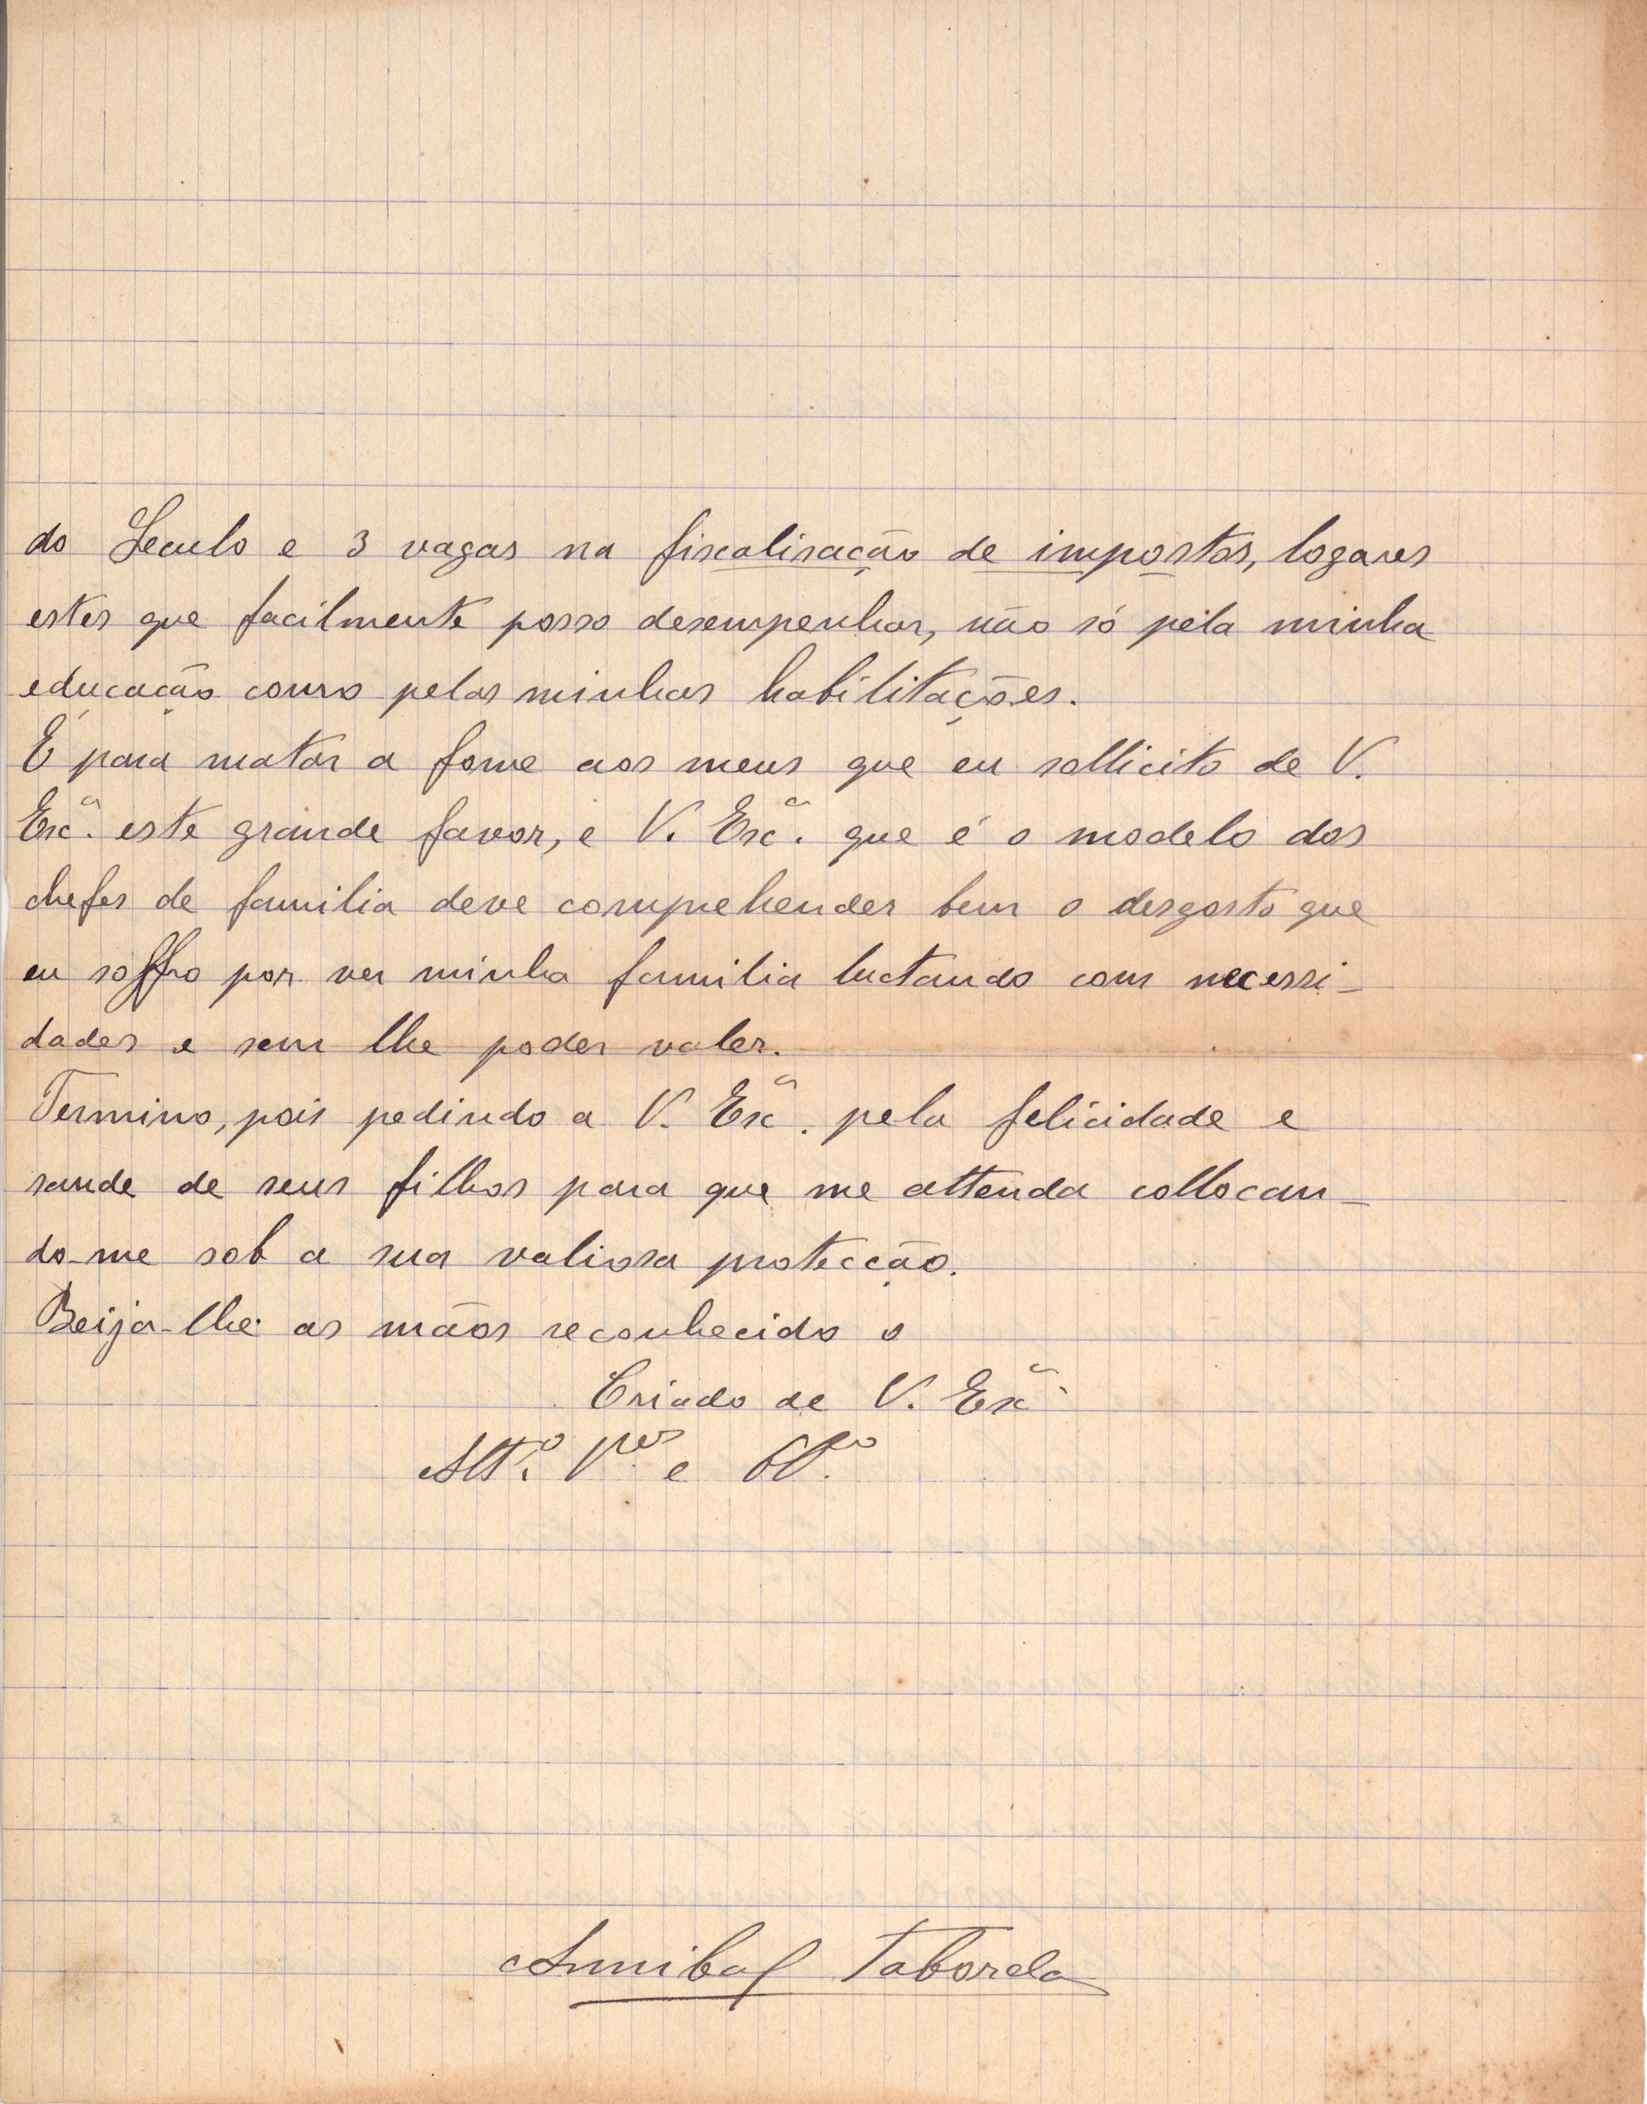 do Seculo e 3 vagas na fiscalisação de impostos, logares
estes que facilmente posso desempenhar, não só pela minha
educação como pelas minhas habilitações.
É para matar a fome aos meus que eu sollicito de V.
Exª. este grande favor, e V. Exª. que é o modelo dos
chefes de familia deve comprehender bem o desgosto que
eu soffro por ver minha familia luctando com necessi-
dades e sem lhe poder valer.
Termino, pois pedindo a V. Exª. pela felicidade e
saude de seus filhos para que me attenda collocan-
do-me sob a sua valiosa protecção.
Beija-lhe as mãos reconhecido o
Criado de V. Exª.
Attº. Vºr e Obº.
Annibal Taborda